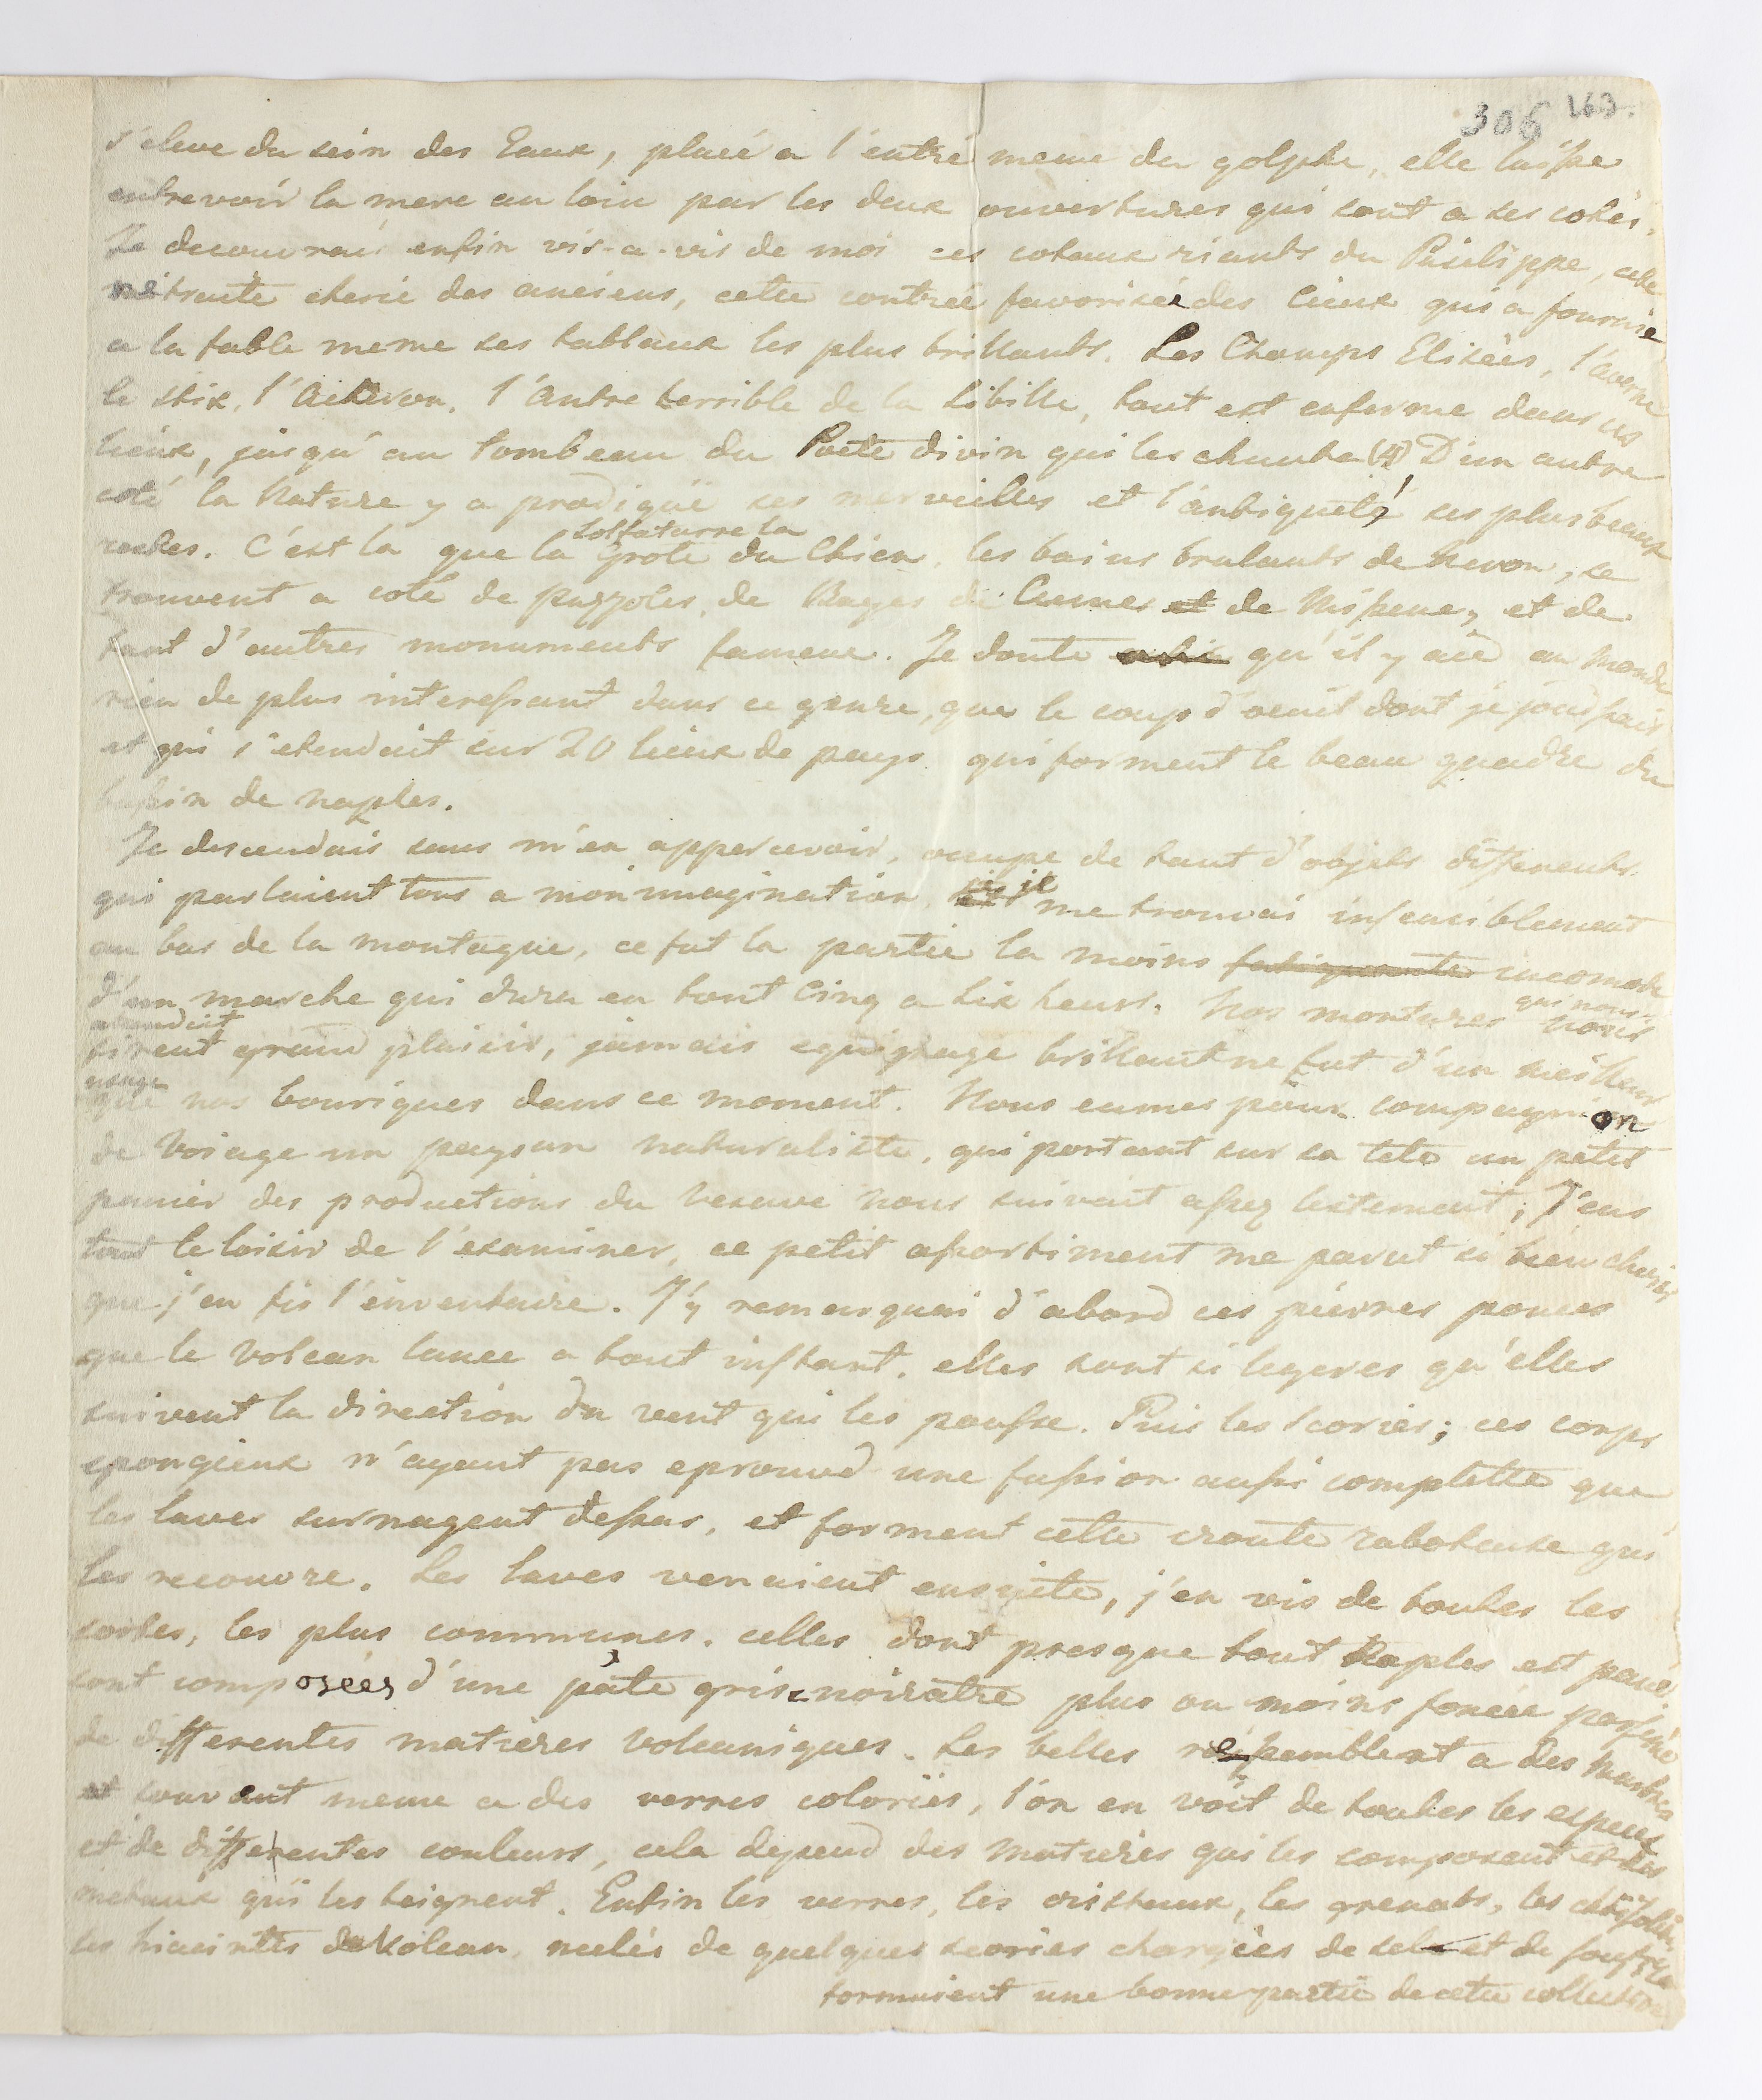 306 163.
s'eleve du sein des Eaux, placé a l'entré meme du golphe, elle laisse
entrevoir la mere au loin par les deux ouvertures qui sont a ses cotés.
Je decouvrais enfin vis-a-vis de moi ces coteaux riants du Pausilippe, cette
retraite cherie des anciens, cette contrée favorisée des Cieux qui a fournie
a la fable meme ses tablaux les plus brillants. Les Champs Elisées, l'averne
le stix, l'Acheron, l'Antre terrible de la Sibille, tout est enferme dans ces
lieux, jusqu'au tombeau du Poete divin qui les chanta (4) D'un autre
coté la Nature y a prodigué ses merveilles et l'antiquité, ses plus beaux
restes. C'est la que la Solfaturre la Grote du Chien, les bains brulants de Neron, se
trouvent a coté de puzzoles, de Bayes de Cumes et de Missene, et de
tant d'autres monuments fameux. Je doute qu'il y aie au monde
rien de plus interessant dans ce genre, que le coup d'oeuil dont je jouissais
et qui s'etendait sur 20 lieux de pays qui forment le beau quadre du
bassin de naples.
Je descendais sans m'en appercevoir, occupé de tant d'objets differents
qui parlaient tous a mon imagination, je me trouvai insensiblement
au bas de la montagne, ce fut la partie la moins fatiguante incomode
d'un marche qui dura en tout Cinq a Six heurs. Nos montures qui nous
atendoit nous
firent grand plaisir, jamais equipage brillant ne fut d'un meilleur
usage
que nos bouriques dans ce moment. Nous eumes pour compagnion
de Voiage un paysan naturaliste, qui portant sur sa tete un petit
panier des productions du Vesuve nous suivait assez lestement; J'eus
tout le loisir de l'examiner, ce petit assortiment me parut si bien choisi
que j'en fis l'inventaire. J'y remarquai d'abord ces pierres ponces
que le Volcan lance a tout instant, elles sont si legeres qu'elles
suivent la direction du vent qui les pousse. Puis les Scories; ces corps
epongieux n'ayant pas eprouvé une fusion aussi complette que
les laves surnagent dessus, et forment cette croute raboteuse qui
les recouvre. Les laves venaient ensuite, j'en vis de toutes les
sortes, les plus communes, celles dont presque tout Naples est pavé,
sont composées d'une pâte grise noirâtre plus ou moins foncée parsemé
de differentes matieres Volcaniques. Les belles ressemblent a des Marbres
et souvent meme a des verres coloriés, l'on en voit de toutes les especes
et de differentes couleurs, cela depend des matieres qui les composent et des
metaux qui les teignent. Enfin les verres, les cristaux, les grenats, les
les hiacintes de Volcan, melés de quelques scories chargées de sel et de souffre
formaient une bonne partie de cette collection